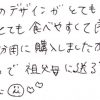 のデザインが とても
とても 食べやすくて良
分用に購入しましたが
で 祖父母に送る